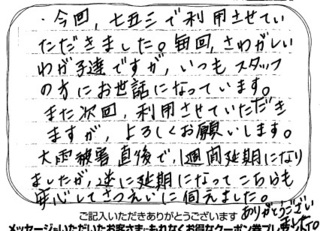 ・今回,七五三で利用させてい
ただきました。毎回,さわがしい
わが子達ですが,いつもスタッフ
の方にお世話になっています。
また次回,利用させていただき
ますが,よろしくお願いします。
大雨被害直後で,1週間延期になり
ましたが,逆に延期になってこちらも
安心してさつえいに伺えました。
ありがとうござい
ご記入いただきありがとうございます
メッセージをいただいたお客さまにもれなくお得なクーポン券プレゼント